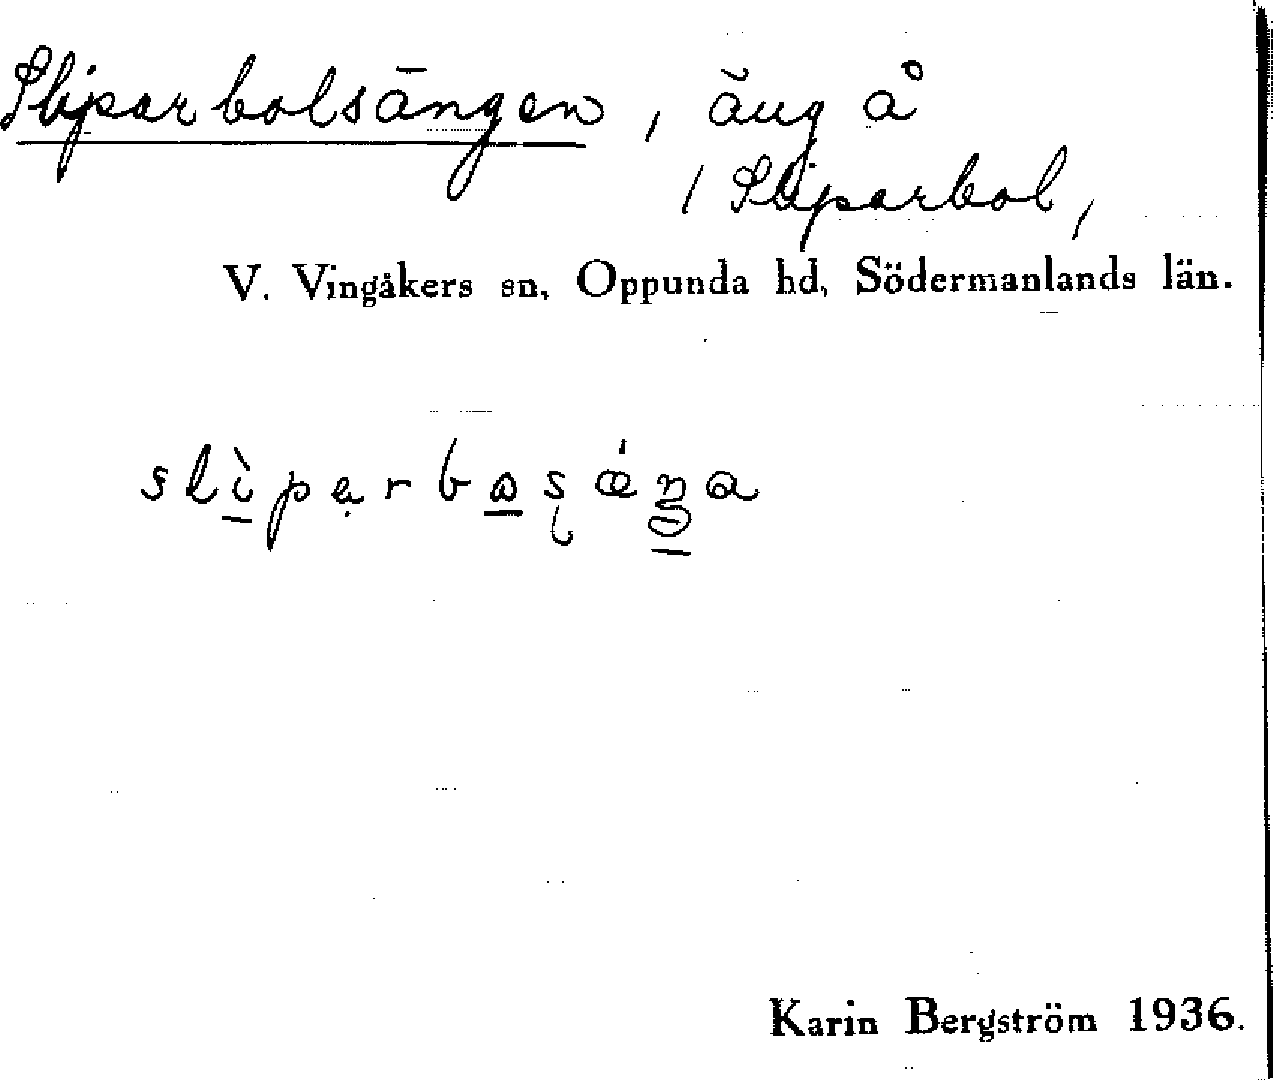 Sliparbolsängen, äng å
/ Sliparbol,
V. Vingåkers sn, Oppunda hd, Södermanlands län.
Karin Bergström 1936.